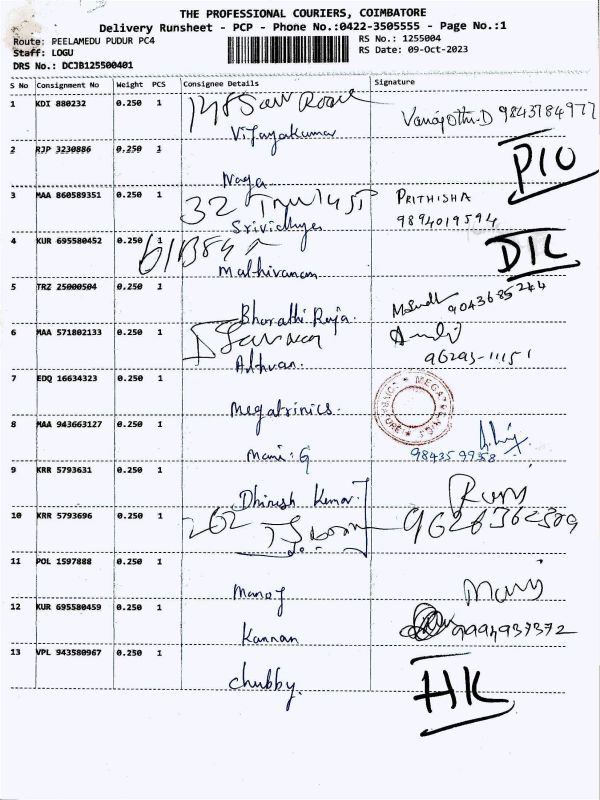 THE PROFESSIONAL COURIERS, COIMBATORE
Delivery Runsheet - PCP - Phone No.:0422-3505555 - Page No.:1
Route: PEELAMEDU PUDUR PC4
Staff: LOGU
DRS No.: DCJB125500401
RS No.: 1255004
RS Date: 09-Oct-2023
S No Consignment No Weight PCS Consignee Details Signature
1 KDI 880232 0.250 1
Vijayakumar
9843784977
2 RJP 3230886 0.250 1
Naga
3 MAA 860589351 0.250 1
32
Srividhya
PRITHISHA
9894019594
4 KUR 695580452 0.250 1
Mathivanan
DIL
5 TRZ 25000504 0.250 1
Bharathi Raja.
9043685244
6 MAA 571802133 0.250 1
96293-11151
7 EDQ 16634323 0.250 1
Megatrinics.
8 MAA 943663127 0.250 1
Mani. G
9843599358
9 KRR 5793631 0.250 1
Dhinesh Kumar. J
10 KRR 5793696 0.250 1
262
11 POL 1597888 0.250 1
Manoj
12 KUR 695580459 0.250 1
Kannan
9994937372
13 VPL 943580967 0.250 1
Chubby.
HK